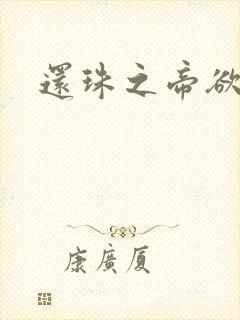 還珠之帝欲
康廣厦